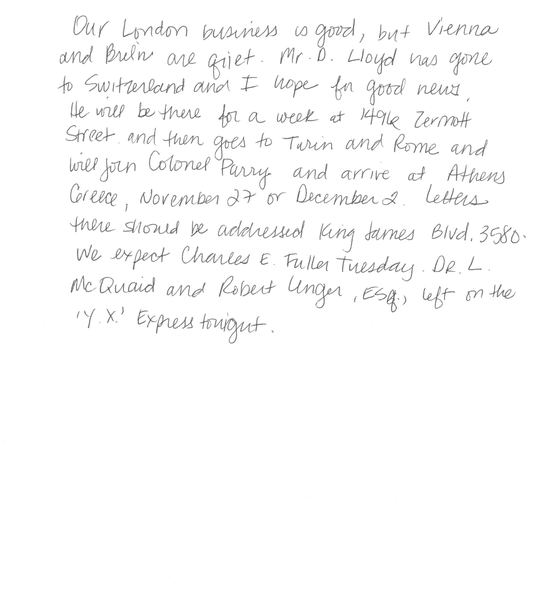 Our London business is good, but Vienna
and Berlin are quiet. Mr. D. Lloyd has gone
to Switzerland and I hope for good news.
He will be there for a week at 1496 Zermott
Street and then goes to Turin and Rome and
will join Colonel Parry and arrive at Athens
Greece, November 27 or December 2. Letters
there should be addressed King James Blvd. 3580.
We expect Charles E. Fuller Tuesday. DR. L.
McQuaid and Robert Unger, ESq., left on the
'Y.X.' Express tonight.